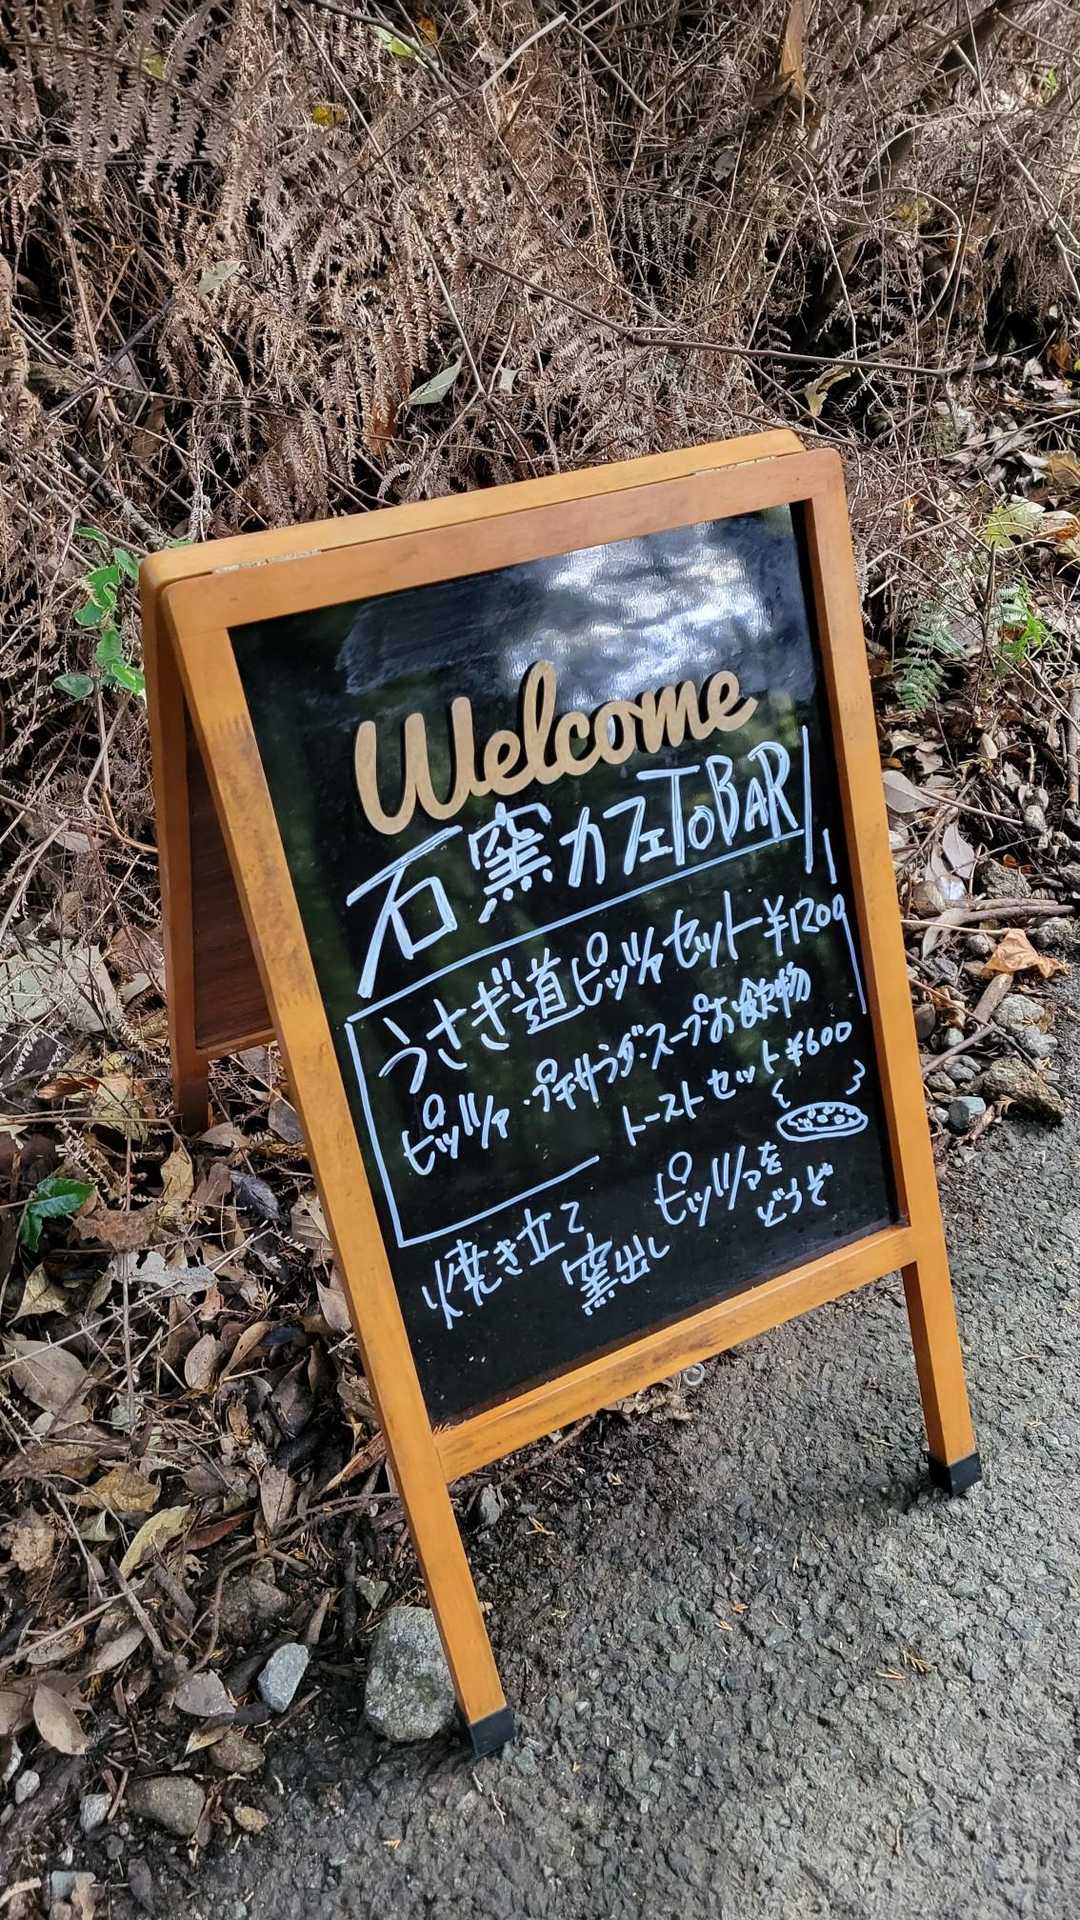 Welcome
石窯カフェTOBAR
うさぎ道ピッツァセット¥1200
ピッツァ・プチサラダ・スープ・お飲物
トーストセット¥600
焼き立て
窯出し
ピッツァを
どうぞ